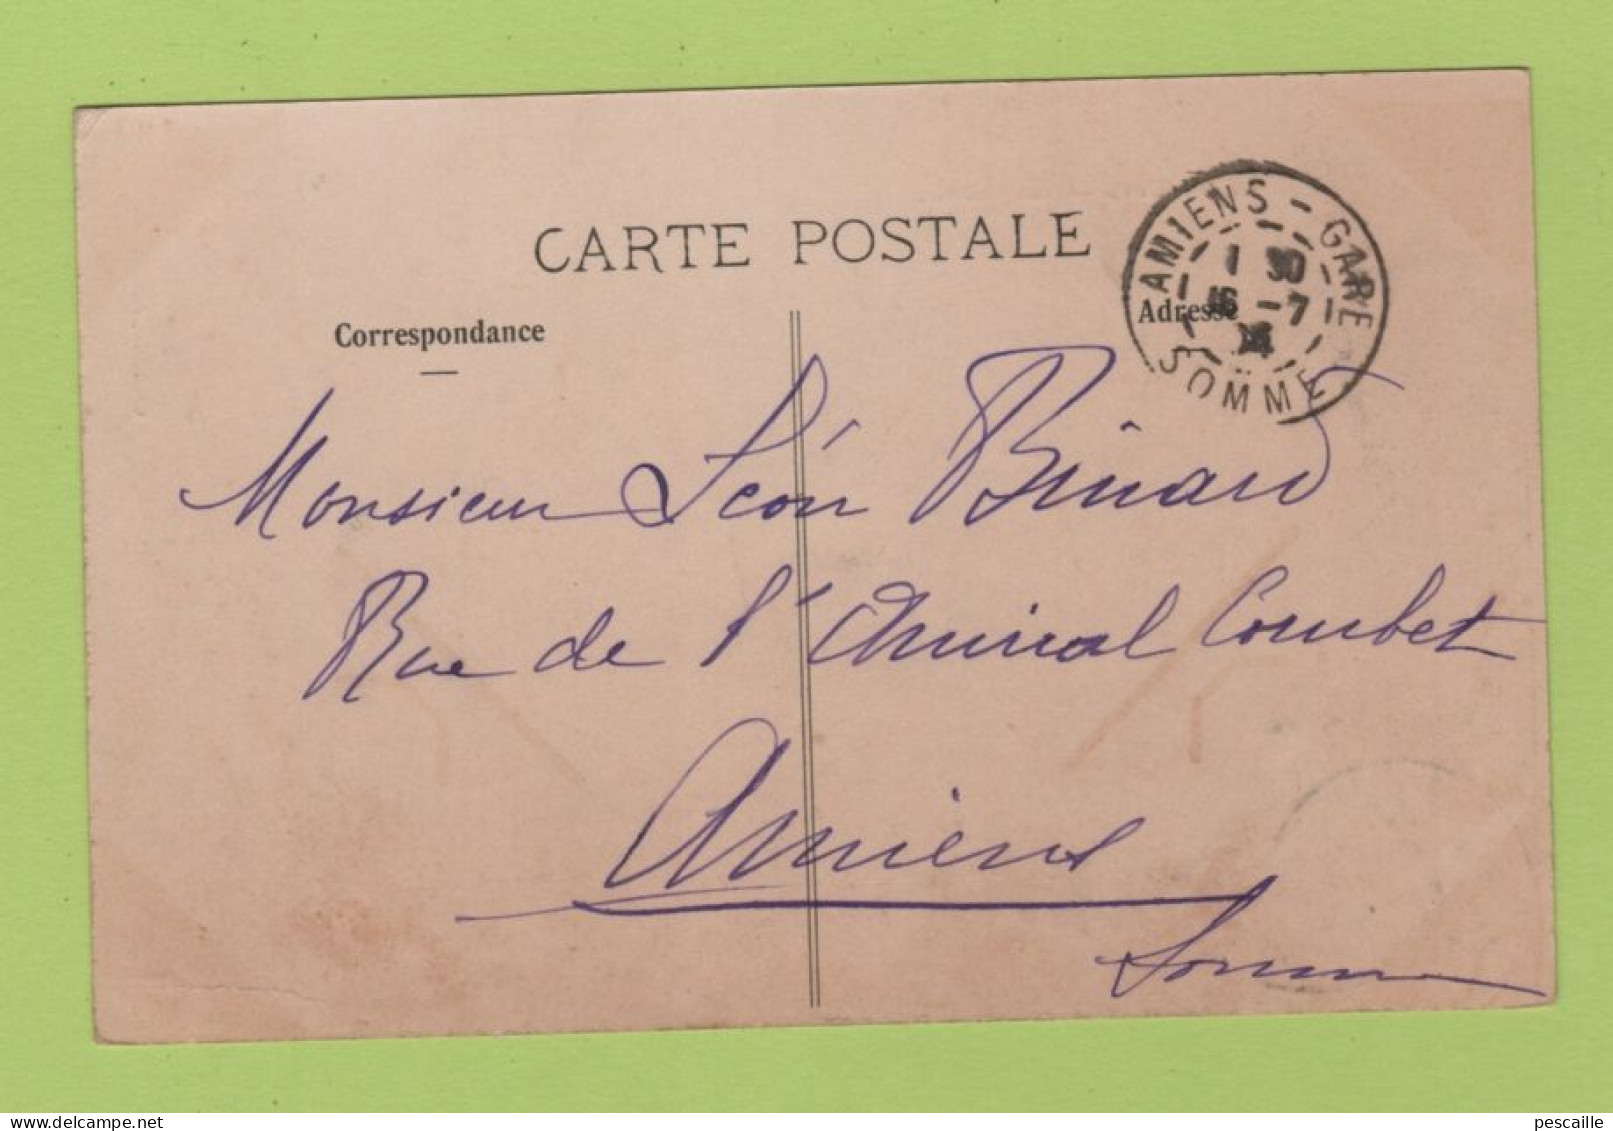 CARTE POSTALE
Correspondance
Adresse
AMIENS - GARE
1 30
16 - 7
SOMME
Monsieur Léon Binard
Rue de l'Amiral Courbet
Amiens
Somme
pescaille